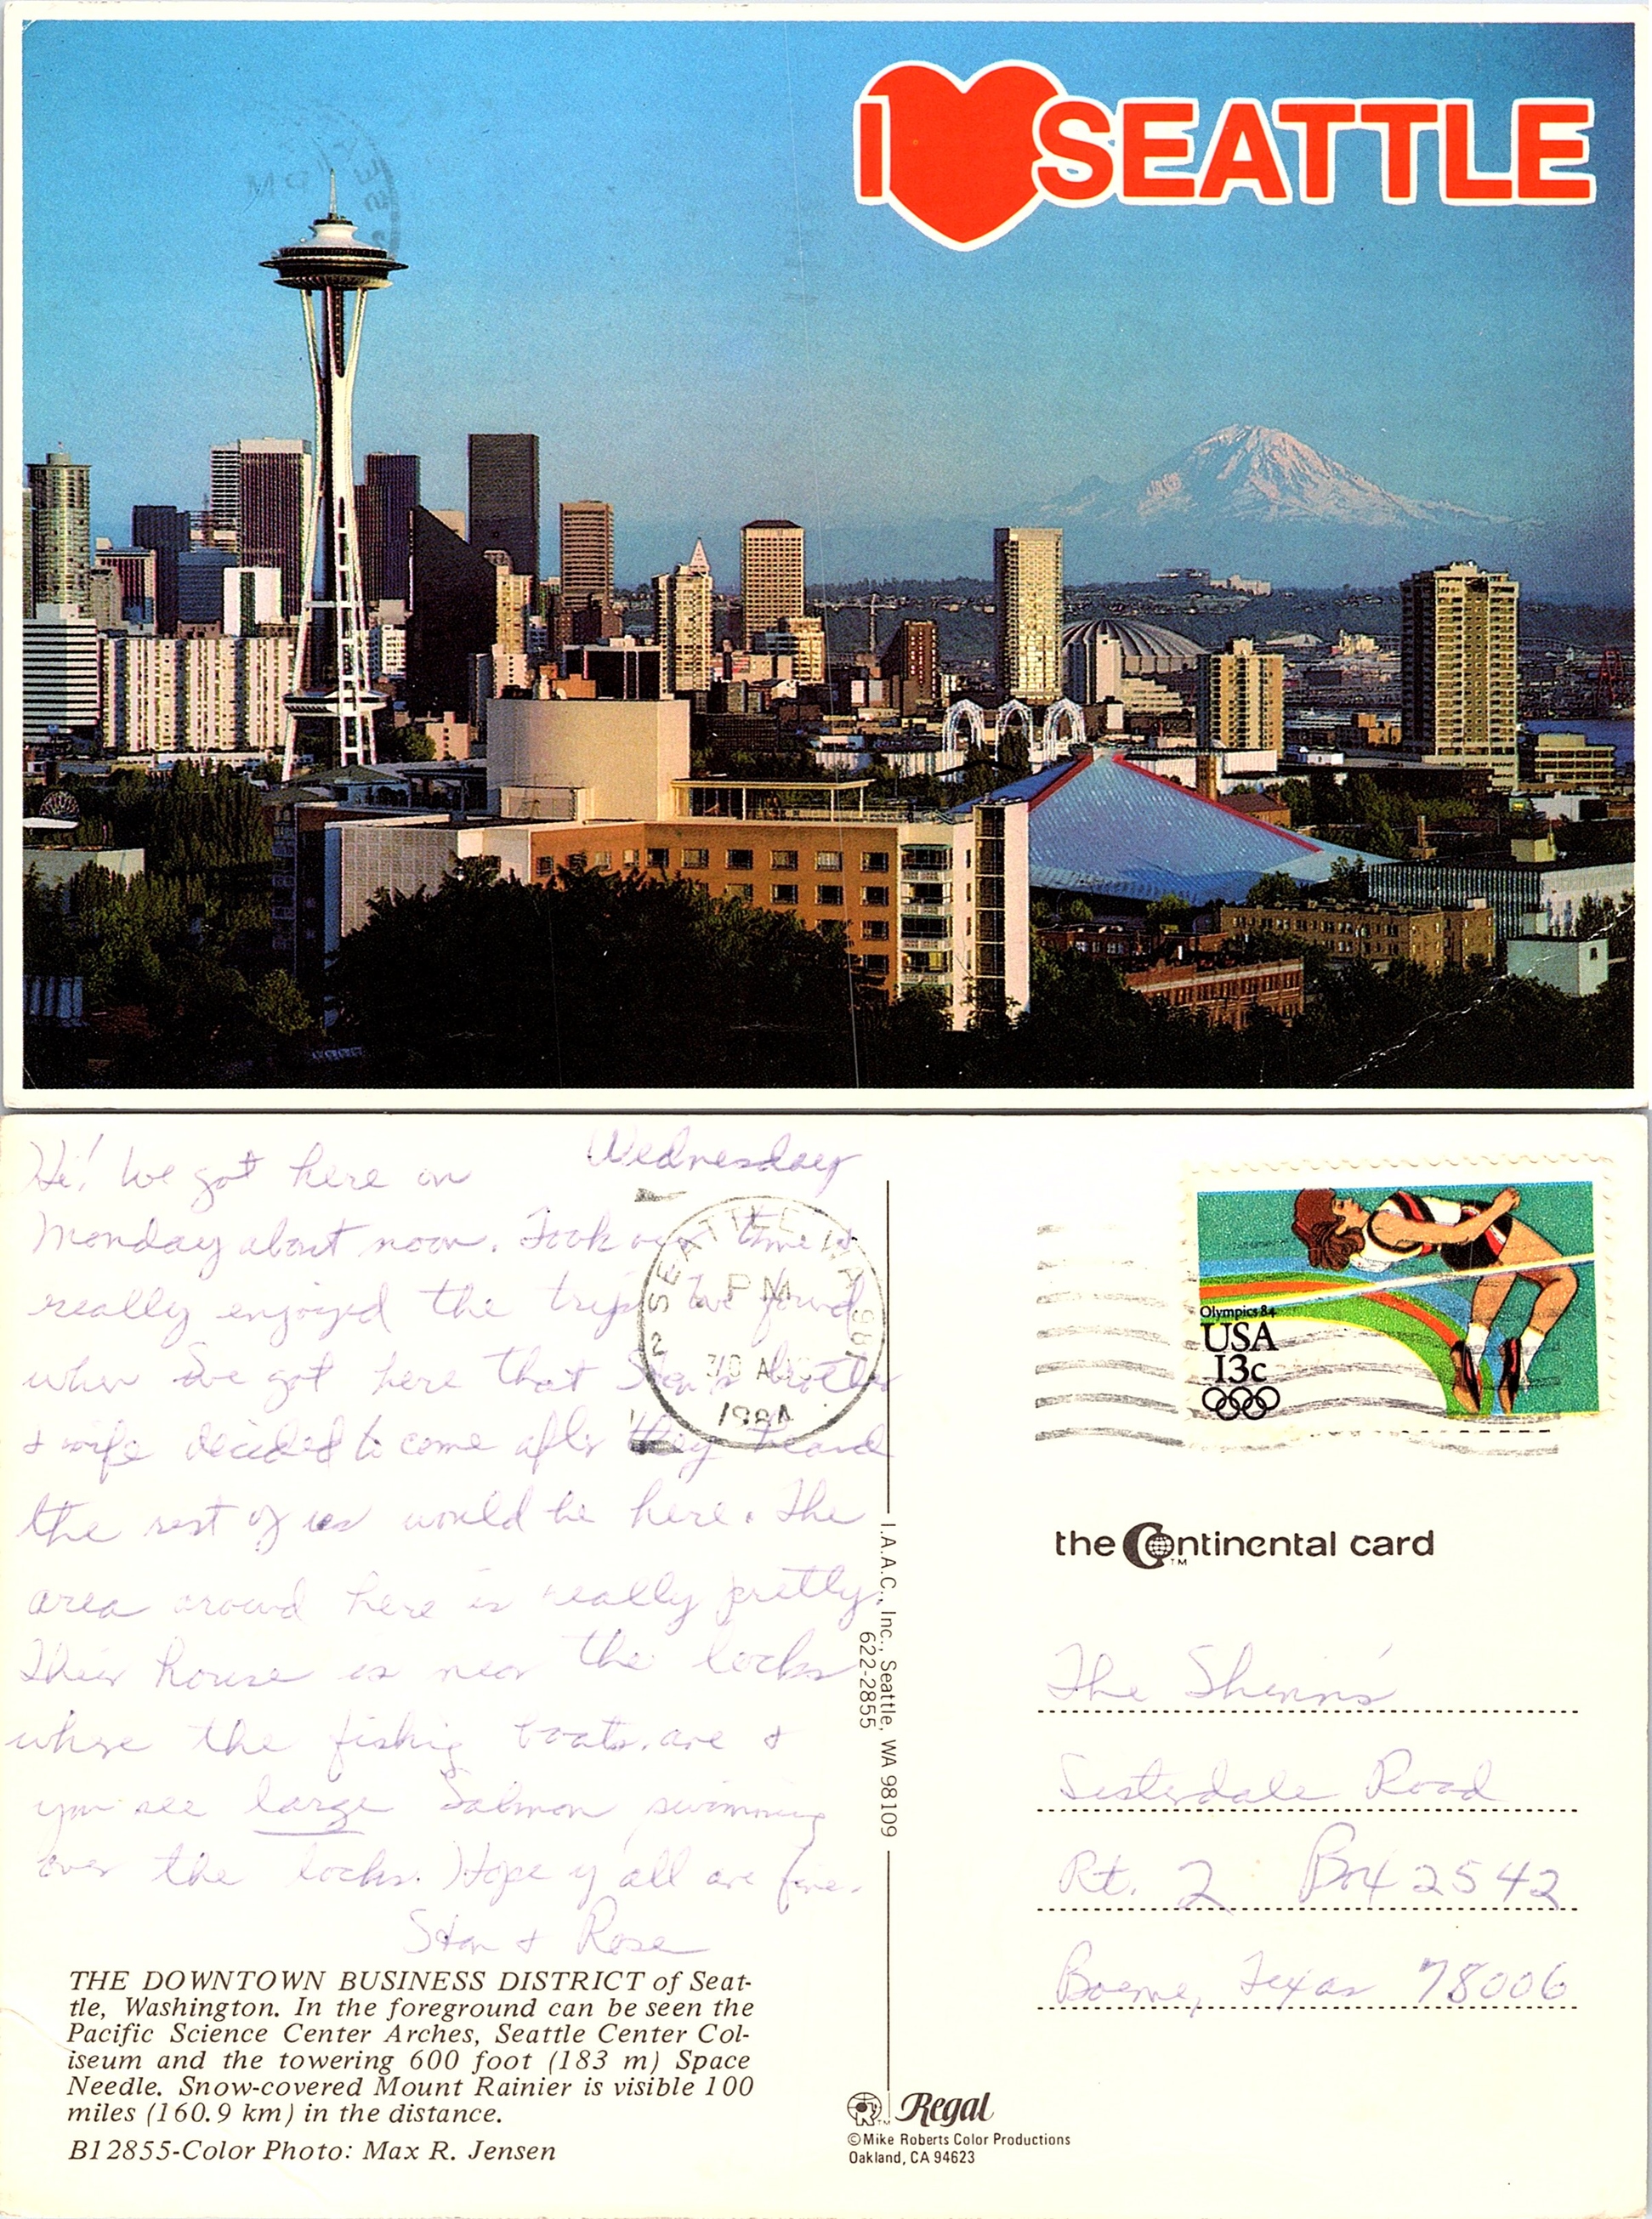 I ♥ SEATTLE
Wednesday
Hi! We got here on
Monday about noon. Took our time &
really enjoyed the trip. We found
when we got here that Stan's brother
& wife decided to come after they heard
the rest of us would be here. The
area around here is really pretty.
Their house is near the locks
where the fishing boats are &
you see large Salmon swimming
over the locks. Hope y'all are fine.
Stan & Rose
THE DOWNTOWN BUSINESS DISTRICT of Seat-
tle, Washington. In the foreground can be seen the
Pacific Science Center Arches, Seattle Center Col-
iseum and the towering 600 foot (183 m) Space
Needle. Snow-covered Mount Rainier is visible 100
miles (160.9 km) in the distance.
B12855-Color Photo: Max R. Jensen
SEATTLE WA 981
PM
30
1984
I.A.A.C., Inc., Seattle, WA 98109
622-2855
Olympics 84
USA
13c
the Continental card
TM
The Shinns'
Sisterdale Road
Rt. 2 Box 2542
Boerne, Texas 78006
Regal
©Mike Roberts Color Productions
Oakland, CA 94623